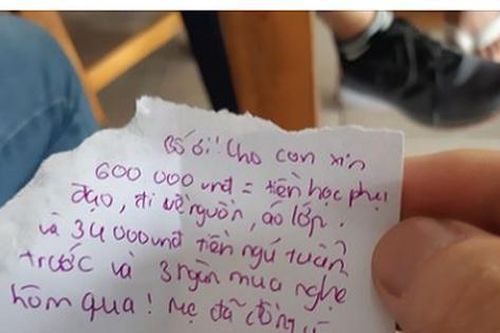 Bố ơi! Cho con xin
600 000 vnđ = tiền học phụ
đạo, đi về nguồn, áo lớp.
và 34000 vnđ tiền ngủ tuần
trước và 3 ngàn mua nghệ
hôm qua! Mẹ đã đồng